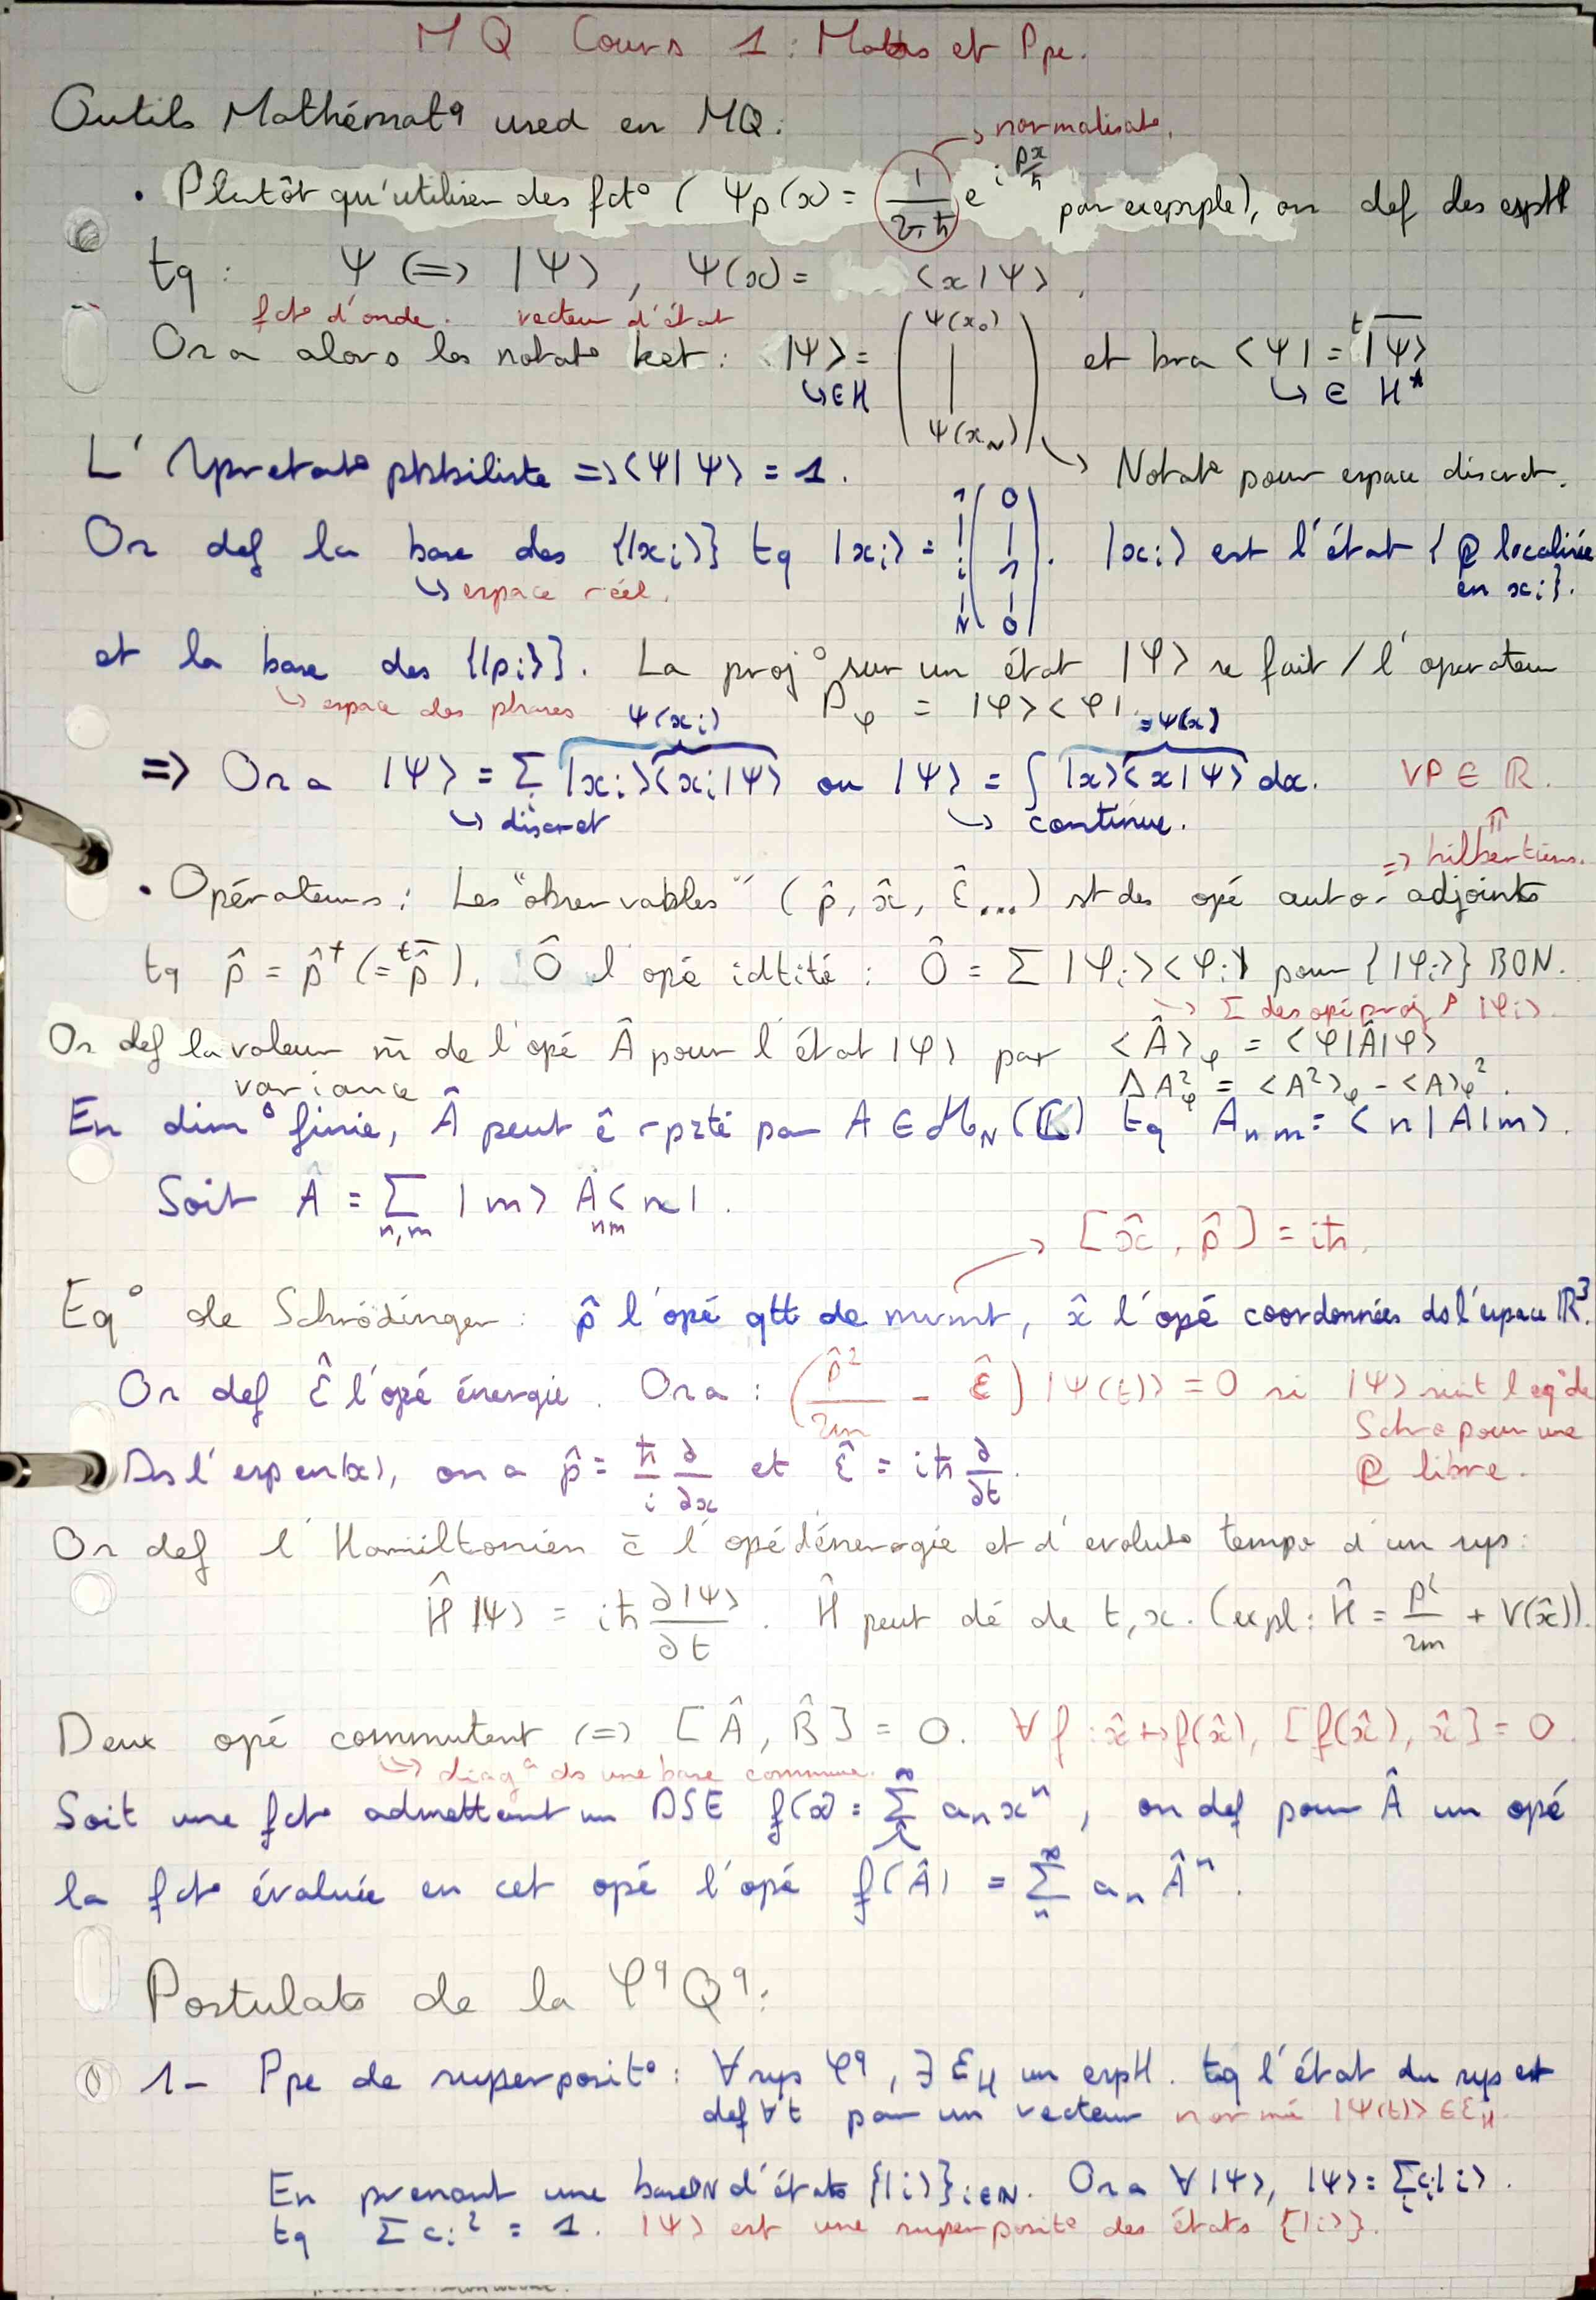 MQ Cours 1 : Maths et Ppe.
Outils Mathémat^q used en MQ :
→ normalisat°.
• Plutôt qu'utiliser des fct° ( Ψ_p(x) = 1/(2πħ) e^{i px/ħ} par exemple), on def des espH
tq : Ψ (=> |Ψ> , Ψ(x) = <x|Ψ> .
fct° d'onde. vecteur d'état
On a alors les notat° ket : |Ψ> = ( Ψ(x_0) | Ψ(x_N) ) et bra <Ψ| = ^t\overline{|Ψ>}
↳ ∈ H ↳ ∈ H*
L' prétat° pbbiliste => <Ψ|Ψ> = 1. ↳ Notat° pour espace discret.
On def la base des {|x_i>} tq |x_i> = 1 | i | N ( 0 | 1 | 0 ). |x_i> est l'état { @ localisée
↳ espace réel. en x_i}.
et la base des {|p_i>}. La proj° sur un état |φ> se fait / l'operateur
↳ espace des phases P_φ = |φ><φ|.
Ψ(x_i) = Ψ(x)
=> On a |Ψ> = Σ_i |x_i><x_i|Ψ> ou |Ψ> = ∫ |x><x|Ψ> dx. VP ∈ ℝ.
↳ discret ↳ continue. ⇑
=> hilbertiens.
• Opérateurs : Les "observables" ( p̂, x̂, Ê, ...) st des opé auto-adjoints
tq p̂ = p̂^† (= ^t\overline{p̂} ). Ô l'opé idtité : Ô = Σ |φ_i><φ_i| pour {|φ_i>} BON.
↳ Σ des opé proj° |φ_i>.
On def la valeur m̄ de l'opé Â pour l'état |φ> par <Â>_φ = <φ|Â|φ>
variance ΔA²_φ = <A²>_φ - <A>_φ².
En dim° finie, Â peut ê rpzté par A ∈ M_N(ℂ) tq A_{nm} = <n|A|m>.
Soit Â = Σ_{n,m} |m> A_{nm} <n|.
→ [x̂, p̂] = iħ.
Eq° de Schrödinger : p̂ l'opé qtt de mvmt, x̂ l'opé coordonnées ds l'espace ℝ³.
On def Ê l'opé énergie. On a : ( p̂²/2m - Ê ) |Ψ(t)> = 0 si |Ψ> suit l'eq° de
Schrö pour une
Ds l'esp en |x>, on a p̂ = ħ/i ∂/∂x et Ê = iħ ∂/∂t. @ libre.
On def l'Hamiltonien c̄ l'opé d'énergie et d'évolut° temps d'un sys :
Ĥ |Ψ> = iħ ∂|Ψ>/∂t . Ĥ peut dé de t, x. (expl : Ĥ = p²/2m + V(x̂)).
Deux opé commutent (=> [Â, B̂] = 0. ∀ f : x̂ ↦ f(x̂), [f(x̂), x̂] = 0.
↳ diag° ds une base commune.
Soit une fct° admettant un DSE f(x) = Σ^∞ a_n x^n , on def pour Â un opé
la fct° évaluée en cet opé l'opé f(Â) = Σ_n^∞ a_n Â^n .
Postulats de la φ^q Q^q :
1- Ppe de superposit° : ∀ sys φ^q , ∃ Ɛ_H un espH. tq l'état du sys est
def ∀t par un vecteur normé |Ψ(t)> ∈ Ɛ_H.
En prenant une base ON d'états {|i>}_{i∈N}. On a ∀ |Ψ>, |Ψ> = Σ_i c_i|i> .
tq Σ c_i² = 1. |Ψ> est une superposit° des états {|i>}.